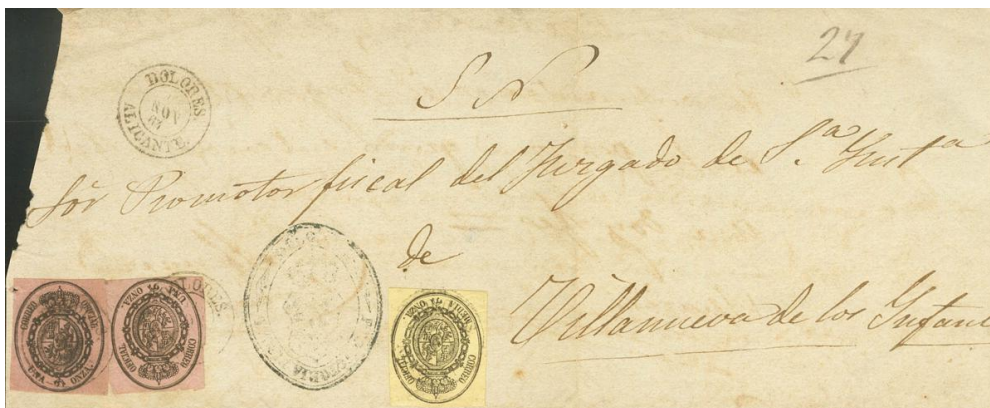 27
S N
DOLORES.
NOV
67
ALICANTE.
Sõr Promotor fiscal del Juzgado de 1.ª Inst.ª
de
Villanueva de los Infan
CORREO OFICIAL
UNA ONZA
CORREO OFICIAL
UNA ONZA
CORREO OFICIAL
MEDIA ONZA